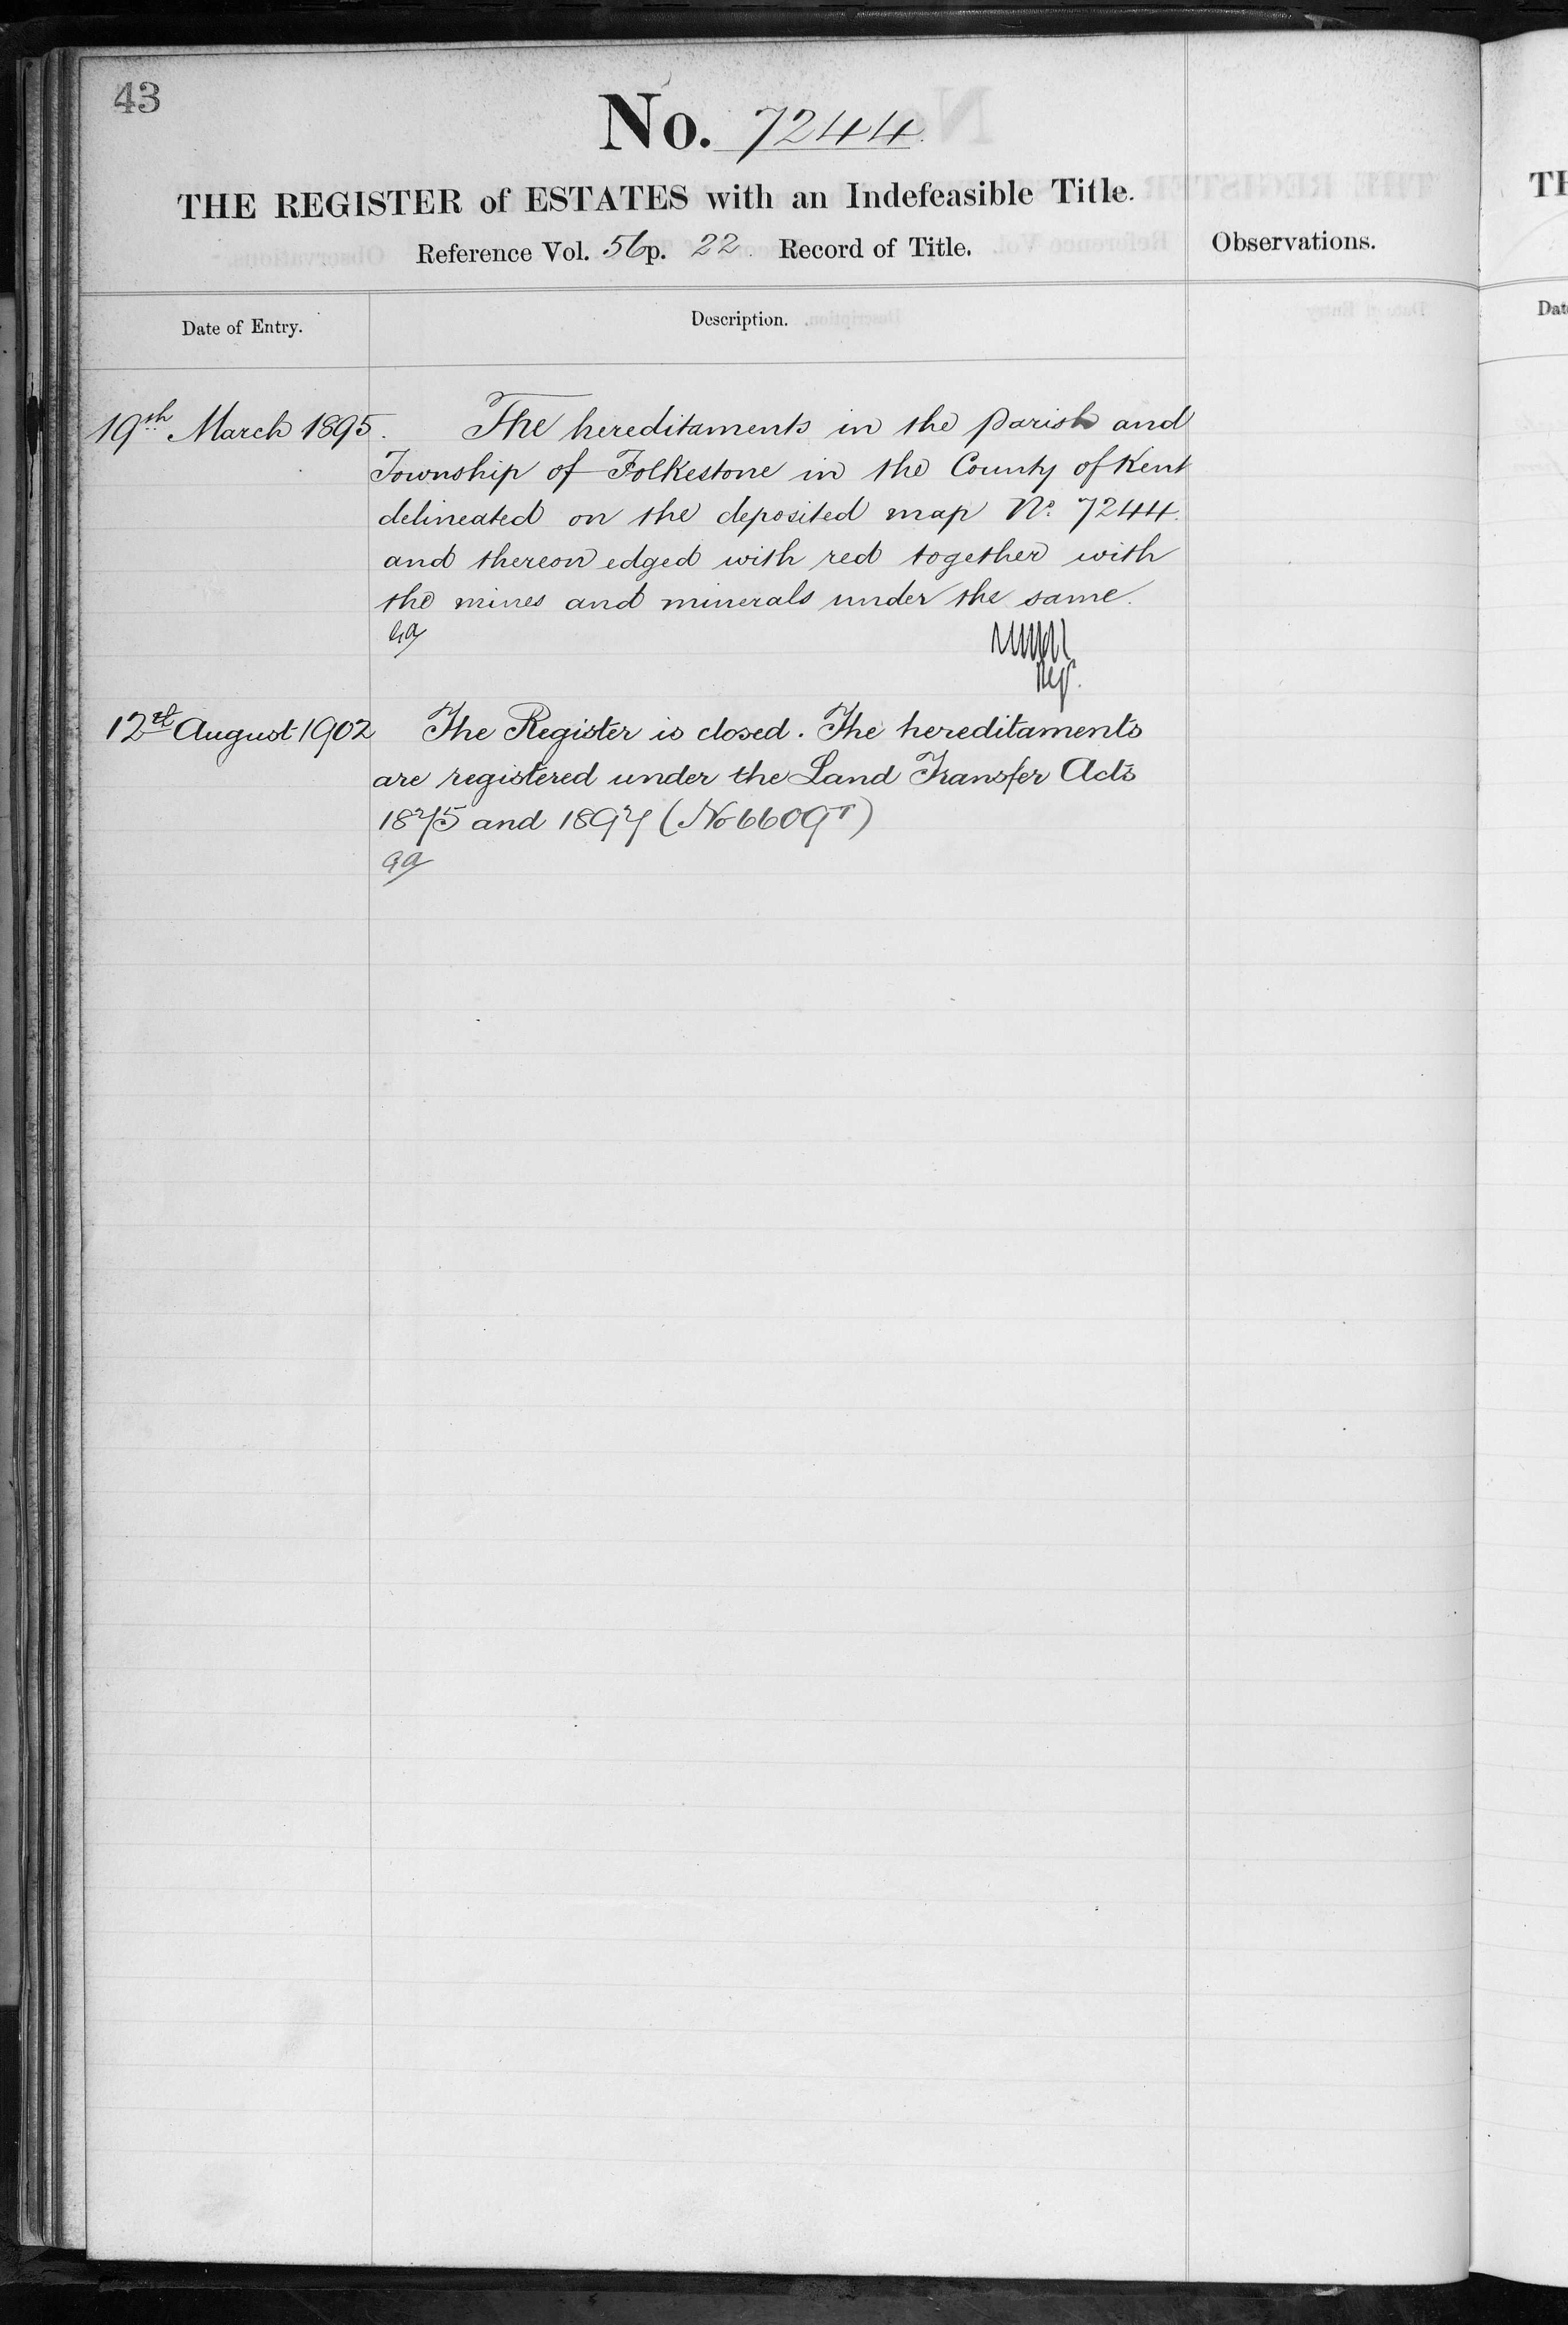 43
No. 7244.
THE REGISTER of ESTATES with an Indefeasible Title.
Reference Vol. 56 p. 22. Record of Title.
Observations.
Date of Entry.
Description.
19th March 1895.
The hereditaments in the parish and
Township of Folkestone in the County of Kent
delineated on the deposited map No. 7244.
and thereon edged with red together with
the mines and minerals under the same.
Reg.
12th August 1902
The Register is closed. The hereditaments
are registered under the Land Transfer Acts
1875 and 1897 (No 6609